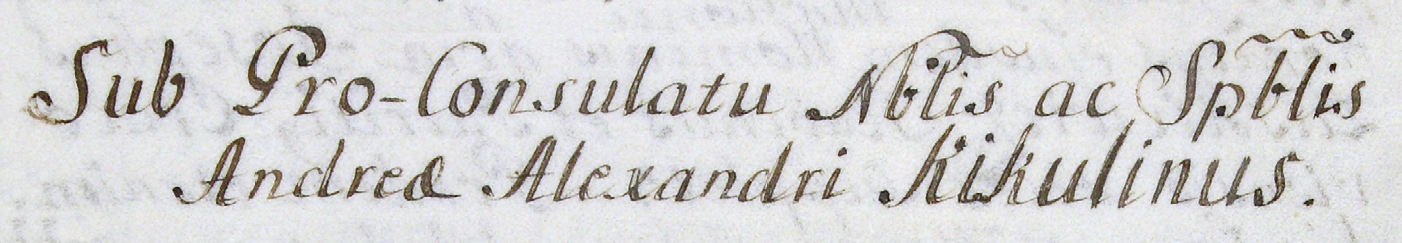 Sub Pro-Consulatu Nblis ac Spblis
Andreæ Alexandri Kikulinus.